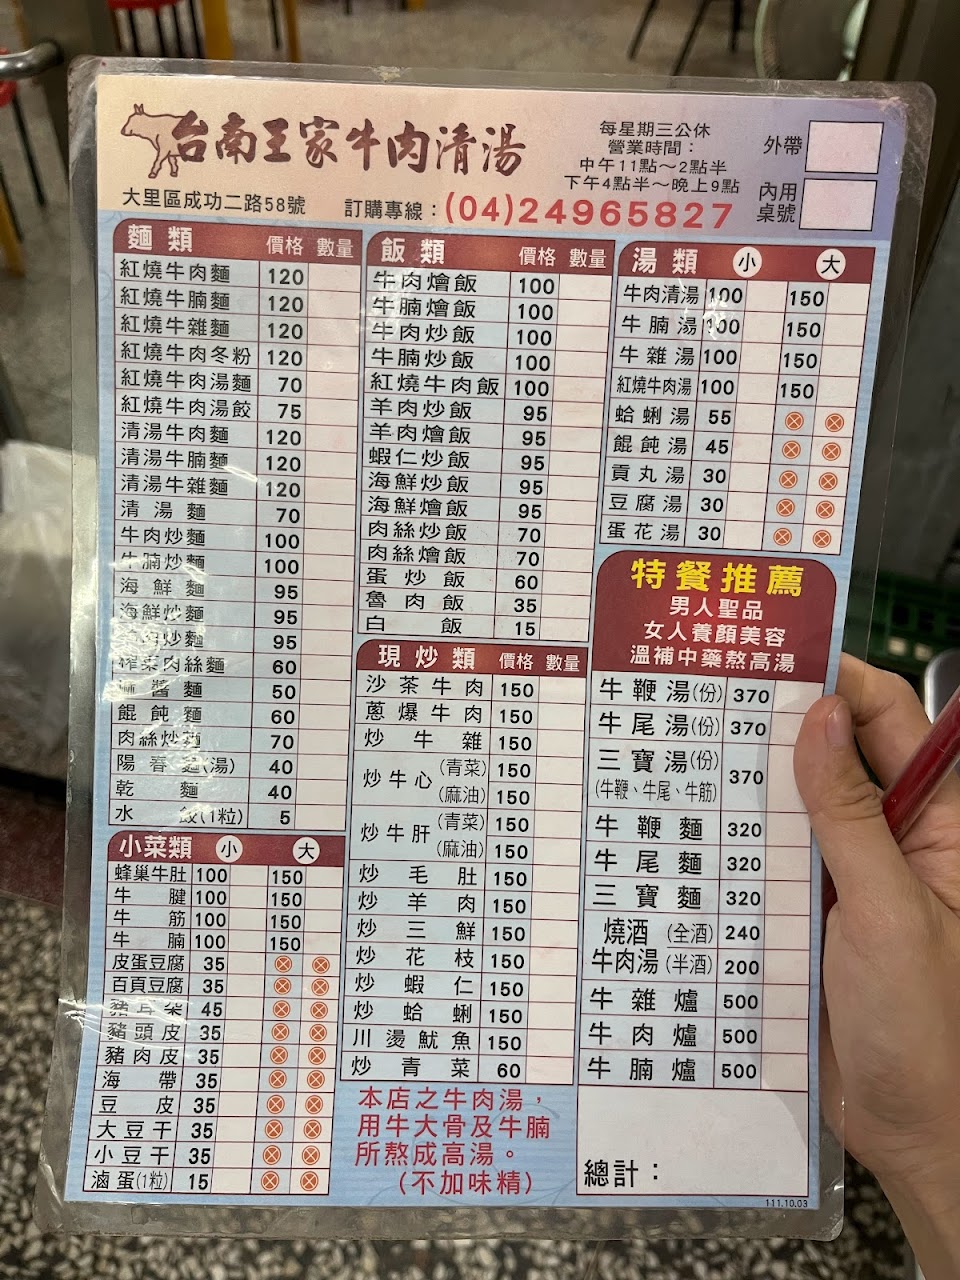 台南王家牛肉清湯
每星期三公休
營業時間：
中午11點～2點半
下午4點半～晚上9點
外帶
內用
桌號
大里區成功二路58號
訂購專線：(04)24965827
麵類 價格 數量
紅燒牛肉麵 120
紅燒牛腩麵 120
紅燒牛雜麵 120
紅燒牛肉冬粉 120
紅燒牛肉湯麵 70
紅燒牛肉湯餃 75
清湯牛肉麵 120
清湯牛腩麵 120
清湯牛雜麵 120
清湯麵 70
牛肉炒麵 100
牛腩炒麵 100
海鮮麵 95
海鮮炒麵 95
肉炒麵 95
榨菜肉絲麵 60
麻醬麵 50
餛飩麵 60
肉絲炒麵 70
陽春麵(湯) 40
乾麵 40
水餃(1粒) 5
小菜類 小 大
蜂巢牛肚 100 150
牛腱 100 150
牛筋 100 150
牛腩 100 150
皮蛋豆腐 35
百頁豆腐 35
豬耳朵 45
豬頭皮 35
豬肉皮 35
海帶 35
豆皮 35
大豆干 35
小豆干 35
滷蛋(1粒) 15
飯類 價格 數量
牛肉燴飯 100
牛腩燴飯 100
牛肉炒飯 100
牛腩炒飯 100
紅燒牛肉飯 100
羊肉炒飯 95
羊肉燴飯 95
蝦仁炒飯 95
海鮮炒飯 95
海鮮燴飯 95
肉絲炒飯 70
肉絲燴飯 70
蛋炒飯 60
魯肉飯 35
白飯 15
現炒類 價格 數量
沙茶牛肉 150
蔥爆牛肉 150
炒牛雜 150
炒牛心 (青菜) 150
(麻油) 150
炒牛肝 (青菜) 150
(麻油) 150
炒毛肚 150
炒羊肉 150
炒三鮮 150
炒花枝 150
炒蝦仁 150
炒蛤蜊 150
川燙魷魚 150
炒青菜 60
本店之牛肉湯，
用牛大骨及牛腩
所熬成高湯。
(不加味精)
湯類 小 大
牛肉清湯 100 150
牛腩湯 100 150
牛雜湯 100 150
紅燒牛肉湯 100 150
蛤蜊湯 55
餛飩湯 45
貢丸湯 30
豆腐湯 30
蛋花湯 30
特餐推薦
男人聖品
女人養顏美容
溫補中藥熬高湯
牛鞭湯(份) 370
牛尾湯(份) 370
三寶湯(份) 370
(牛鞭、牛尾、牛筋)
牛鞭麵 320
牛尾麵 320
三寶麵 320
燒酒 (全酒) 240
牛肉湯 (半酒) 200
牛雜爐 500
牛肉爐 500
牛腩爐 500
總計：
111.10.03